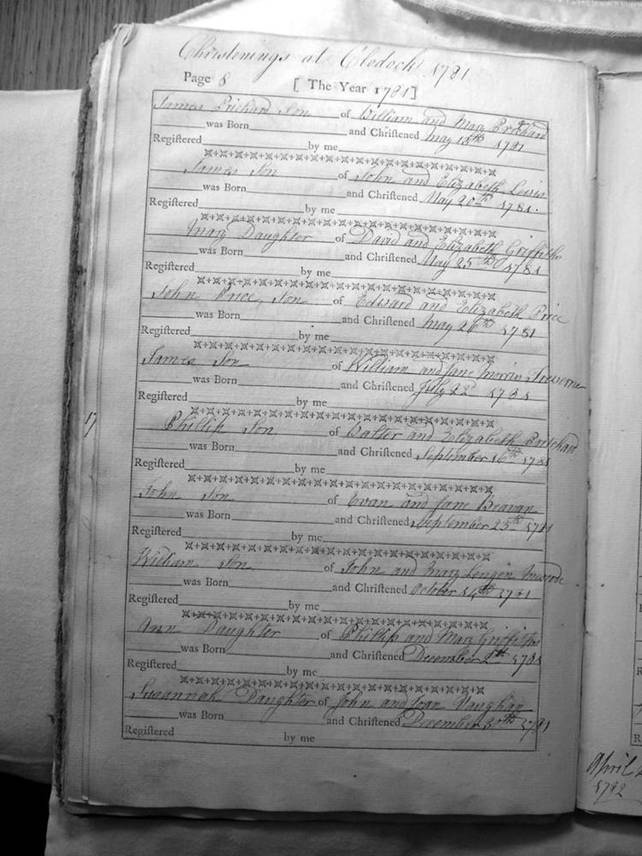 Christenings at Clodock 1781
Page 8 [ The Year 1781]
James Prichard Son of William and Mary Prichard
was Born and Christened May 13th 1781
Registered by me
James Son of John and Elizabeth Lewis
was Born and Christened May 20th 1781.
Registered by me
Mary Daughter of David and Elizabeth Griffiths
was Born and Christened May 25th 1781
Registered by me
John Price, Son of Edward and Elizabeth Price
was Born and Christened May 26th 1781
Registered by me
James Son of William and Jane Morris
was Born and Christened July 22d 1781
Registered by me
17
Phillip Son of Walter and Elizabeth Prichard
was Born and Christened September 16th 1781
Registered by me
John Son of Evan and Jane Beavan
was Born and Christened September 23th 1781
Registered by me
William Son of John and Mary
was Born and Christened October 14th 1781
Registered by me
Ann Daughter of Phillip and Mary Griffiths
was Born and Christened December 2th 1781
Registered by me
Susannah Daughter of John and Joan Vaughan
was Born and Christened December 30th 1781
Registered by me
April
1782